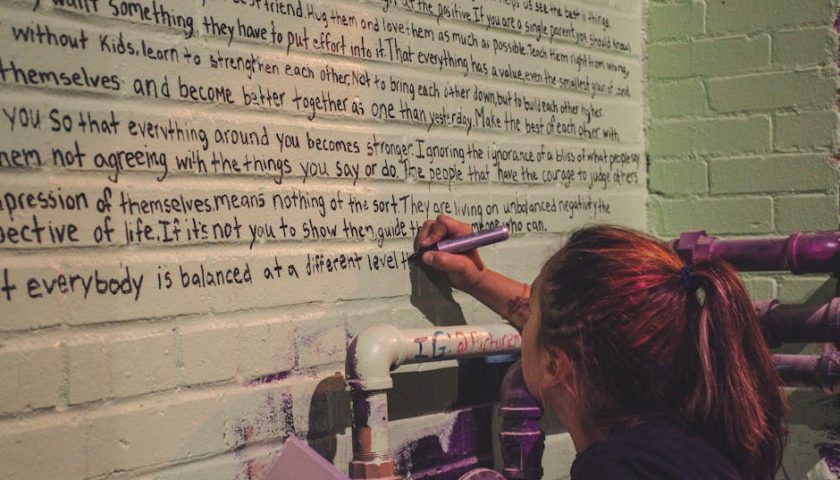 want something, they have to put effort into it. That everything has a value, even the smallest grain of
best friend. Hug them and love them as much as possible. Teach them right from wrong.
at the positive. If you are a single parent, you should know,
helps us see the best in things.
without Kids, learn to strengthen each other, Not to bring each other down, but to build each other higher
themselves and become better together as one than yesterday. Make the best of each other with
you so that everything around you becomes stronger. Ignoring the ignorance of a bliss of what people say
them not agreeing with the things you say or do. The people that have the courage to judge others
pression of themselves, means nothing of the sort. They are living on unbalanced negativity the
pective of life. If it's not you to show them, guide who can.
everybody is balanced at a different level
IG:@Picturen